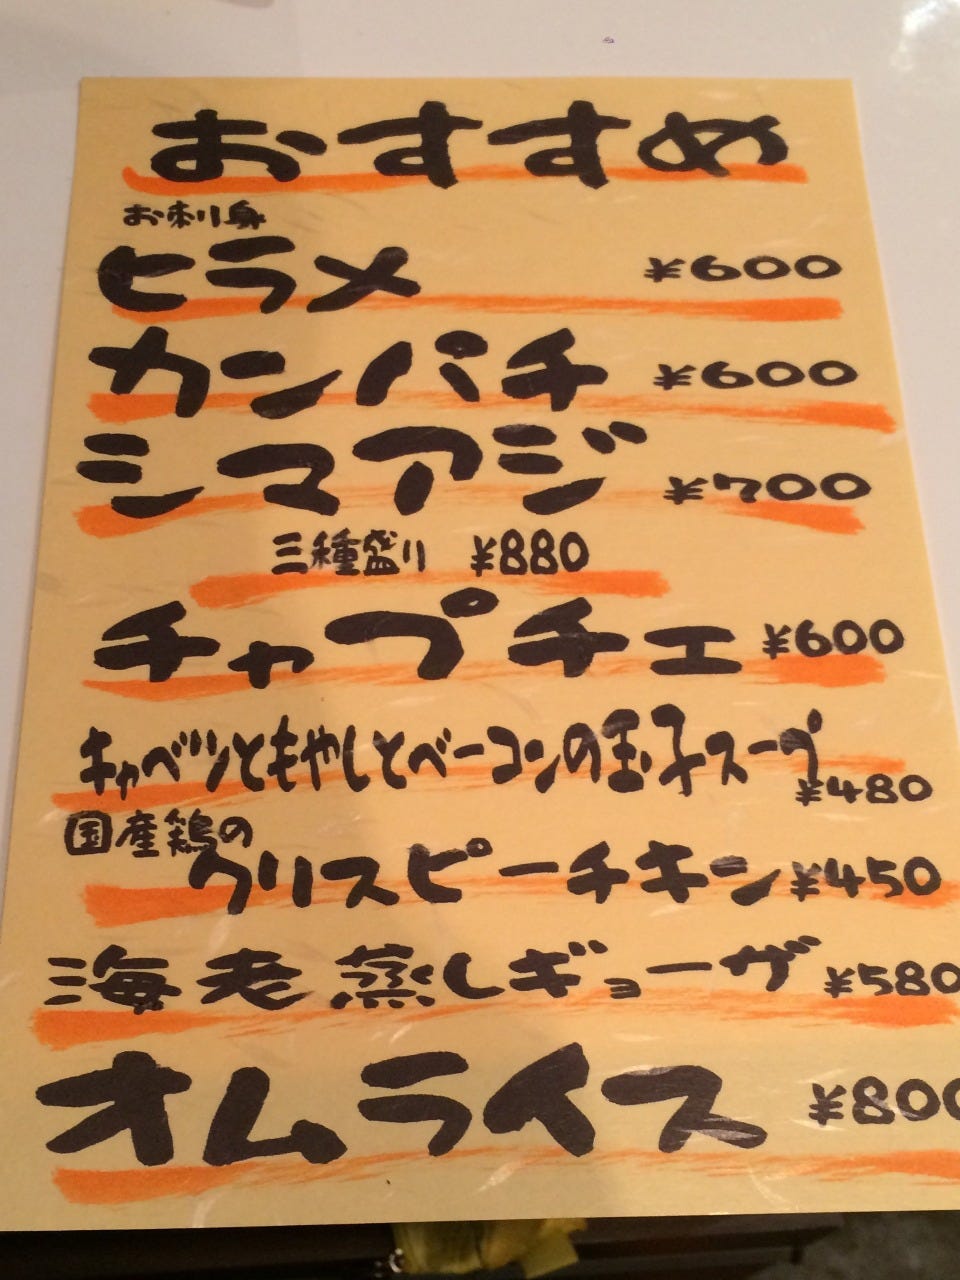 おすすめ
お刺身
ヒラメ ¥600
カンパチ ¥600
シマアジ ¥700
三種盛り ¥880
チャプチェ ¥600
キャベツともやしとベーコンの玉子スープ
¥480
国産鶏の
クリスピーチキン ¥450
海老蒸しギョーザ ¥580
オムライス ¥800